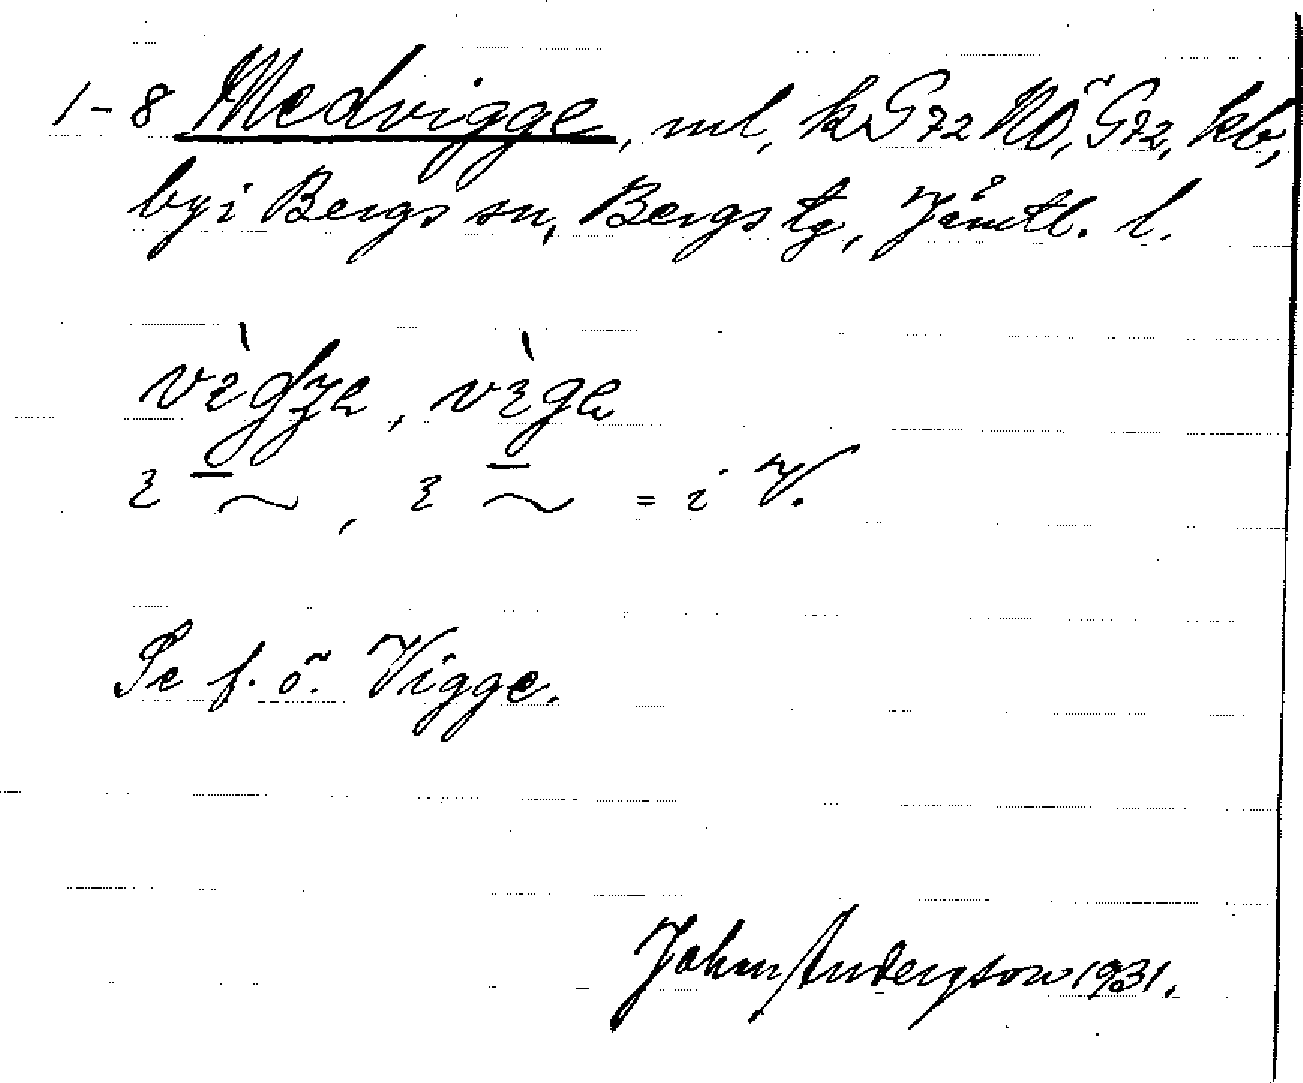 1-8 Medvigge, ml, kG72 NÖ, G72, kb,
by i Bergs sn, Bergs tg, Jämtl. l.
= i V.
Se f. ö. Vigge.
John Andersson 1931.